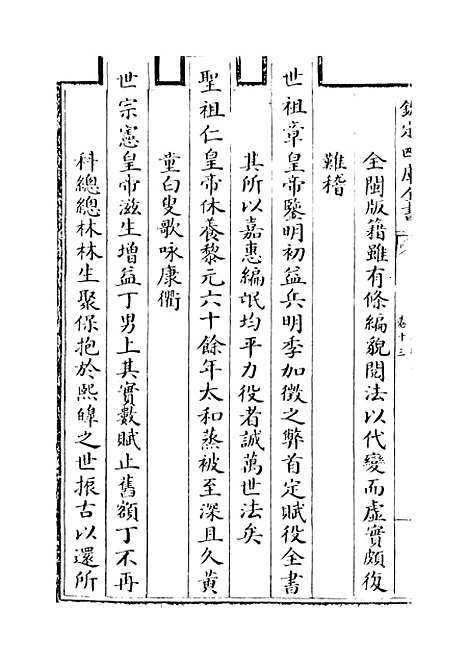 欽定四庫全書
卷十三
全閩版籍雖有條編貌閱法以代變而虛實頗復
難稽
世祖章皇帝鑒明初益兵明季加徵之弊首定賦役全書
其所以嘉惠編氓均平力役者誠萬世法矣
聖祖仁皇帝休養黎元六十餘年太和蒸被至深且久黄
童白叟歌咏康衢
世宗憲皇帝滋生增益丁男上其實數賦止舊額丁不再
科總總林林生聚保抱於熙皥之世振古以還所